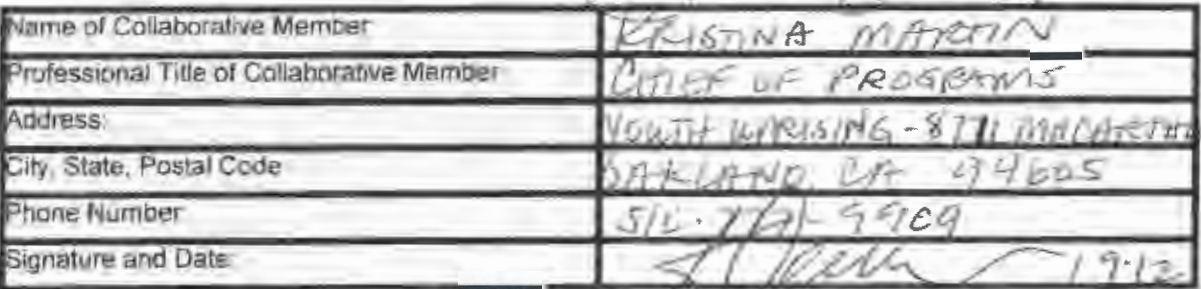 Name of Collaborative Member KRISTINA MARTIN
Professional Title of Collaborative Member CHIEF OF PROGRAMS
Address: YOUTH UPRISING - 8711 MACARTHU
City, State, Postal Code OAKLAND, CA 94605
Phone Number
Signature and Date